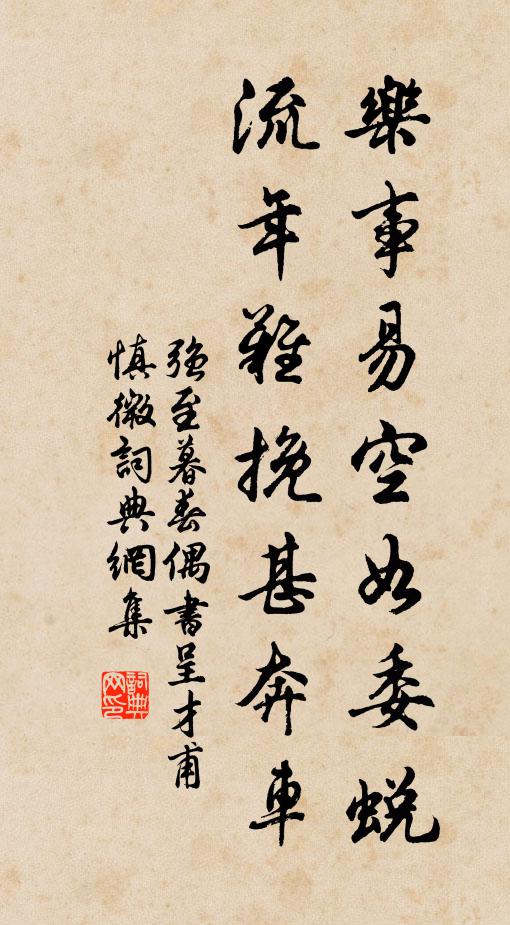 樂事易空如委蛻
流年難挽甚奔車
強至暮春偶書呈才甫
慎微詞典網集
詞典網印